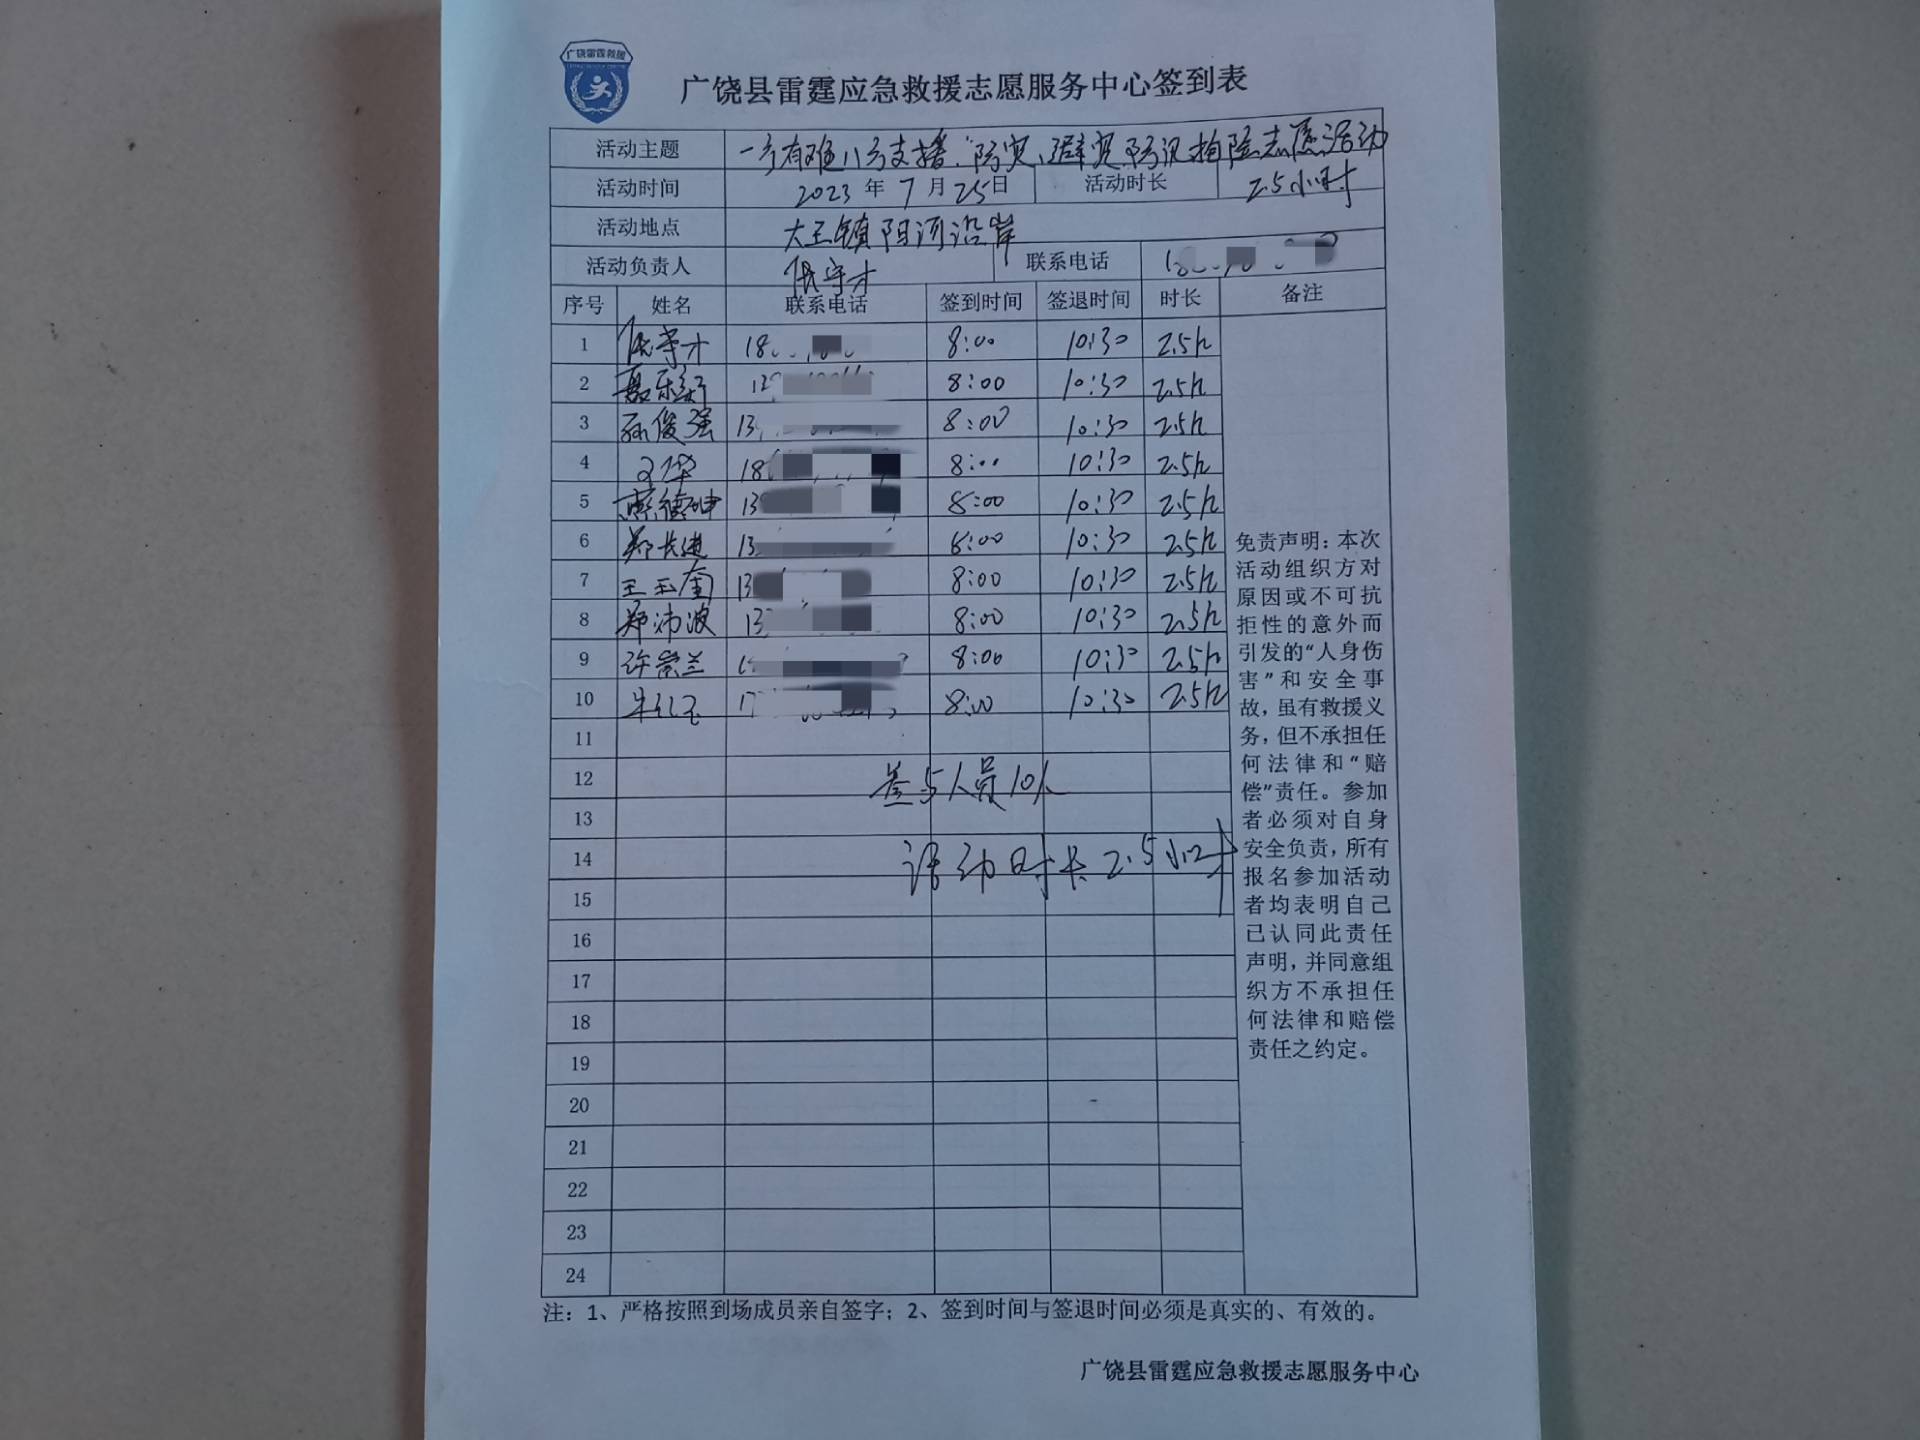 广饶雷霆救援
广饶县雷霆应急救援志愿服务中心签到表
活动主题 一方有难八方支援."防灾、避灾防汛抢险志愿活动
活动时间 2023 年 7 月 25 日 活动时长 2.5小时
活动地点 大王镇阳河沿岸
活动负责人 张守才 联系电话
序号 姓名 联系电话 签到时间 签退时间 时长 备注
1 张守才 18 8:00 10:30 2.5h
2 8:00 10:30 2.5h
3 孙俊强 13 8:00 10:30 2.5h
4 文华 18 8:00 10:30 2.5h
5 燕德坤 13 8:00 10:30 2.5h
6 郑长进 13 8:00 10:30 2.5h
7 王玉奎 13 8:00 10:30 2.5h
8 郑沛波 13 8:00 10:30 2.5h
9 许崇兰 8:00 10:30 2.5h
10 朱红玉 17 8:00 10:30 2.5h
11
12 参与人员10人
13
14 活动时长2.5小时
15
16
17
18
19
20
21
22
23
24
免责声明：本次
活动组织方对
原因或不可抗
拒性的意外而
引发的“人身伤
害”和安全事
故，虽有救援义
务，但不承担任
何法律和“赔
偿”责任。参加
者必须对自身
安全负责，所有
报名参加活动
者均表明自己
已认同此责任
声明，并同意组
织方不承担任
何法律和赔偿
责任之约定。
注：1、严格按照到场成员亲自签字；2、签到时间与签退时间必须是真实的、有效的。
广饶县雷霆应急救援志愿服务中心